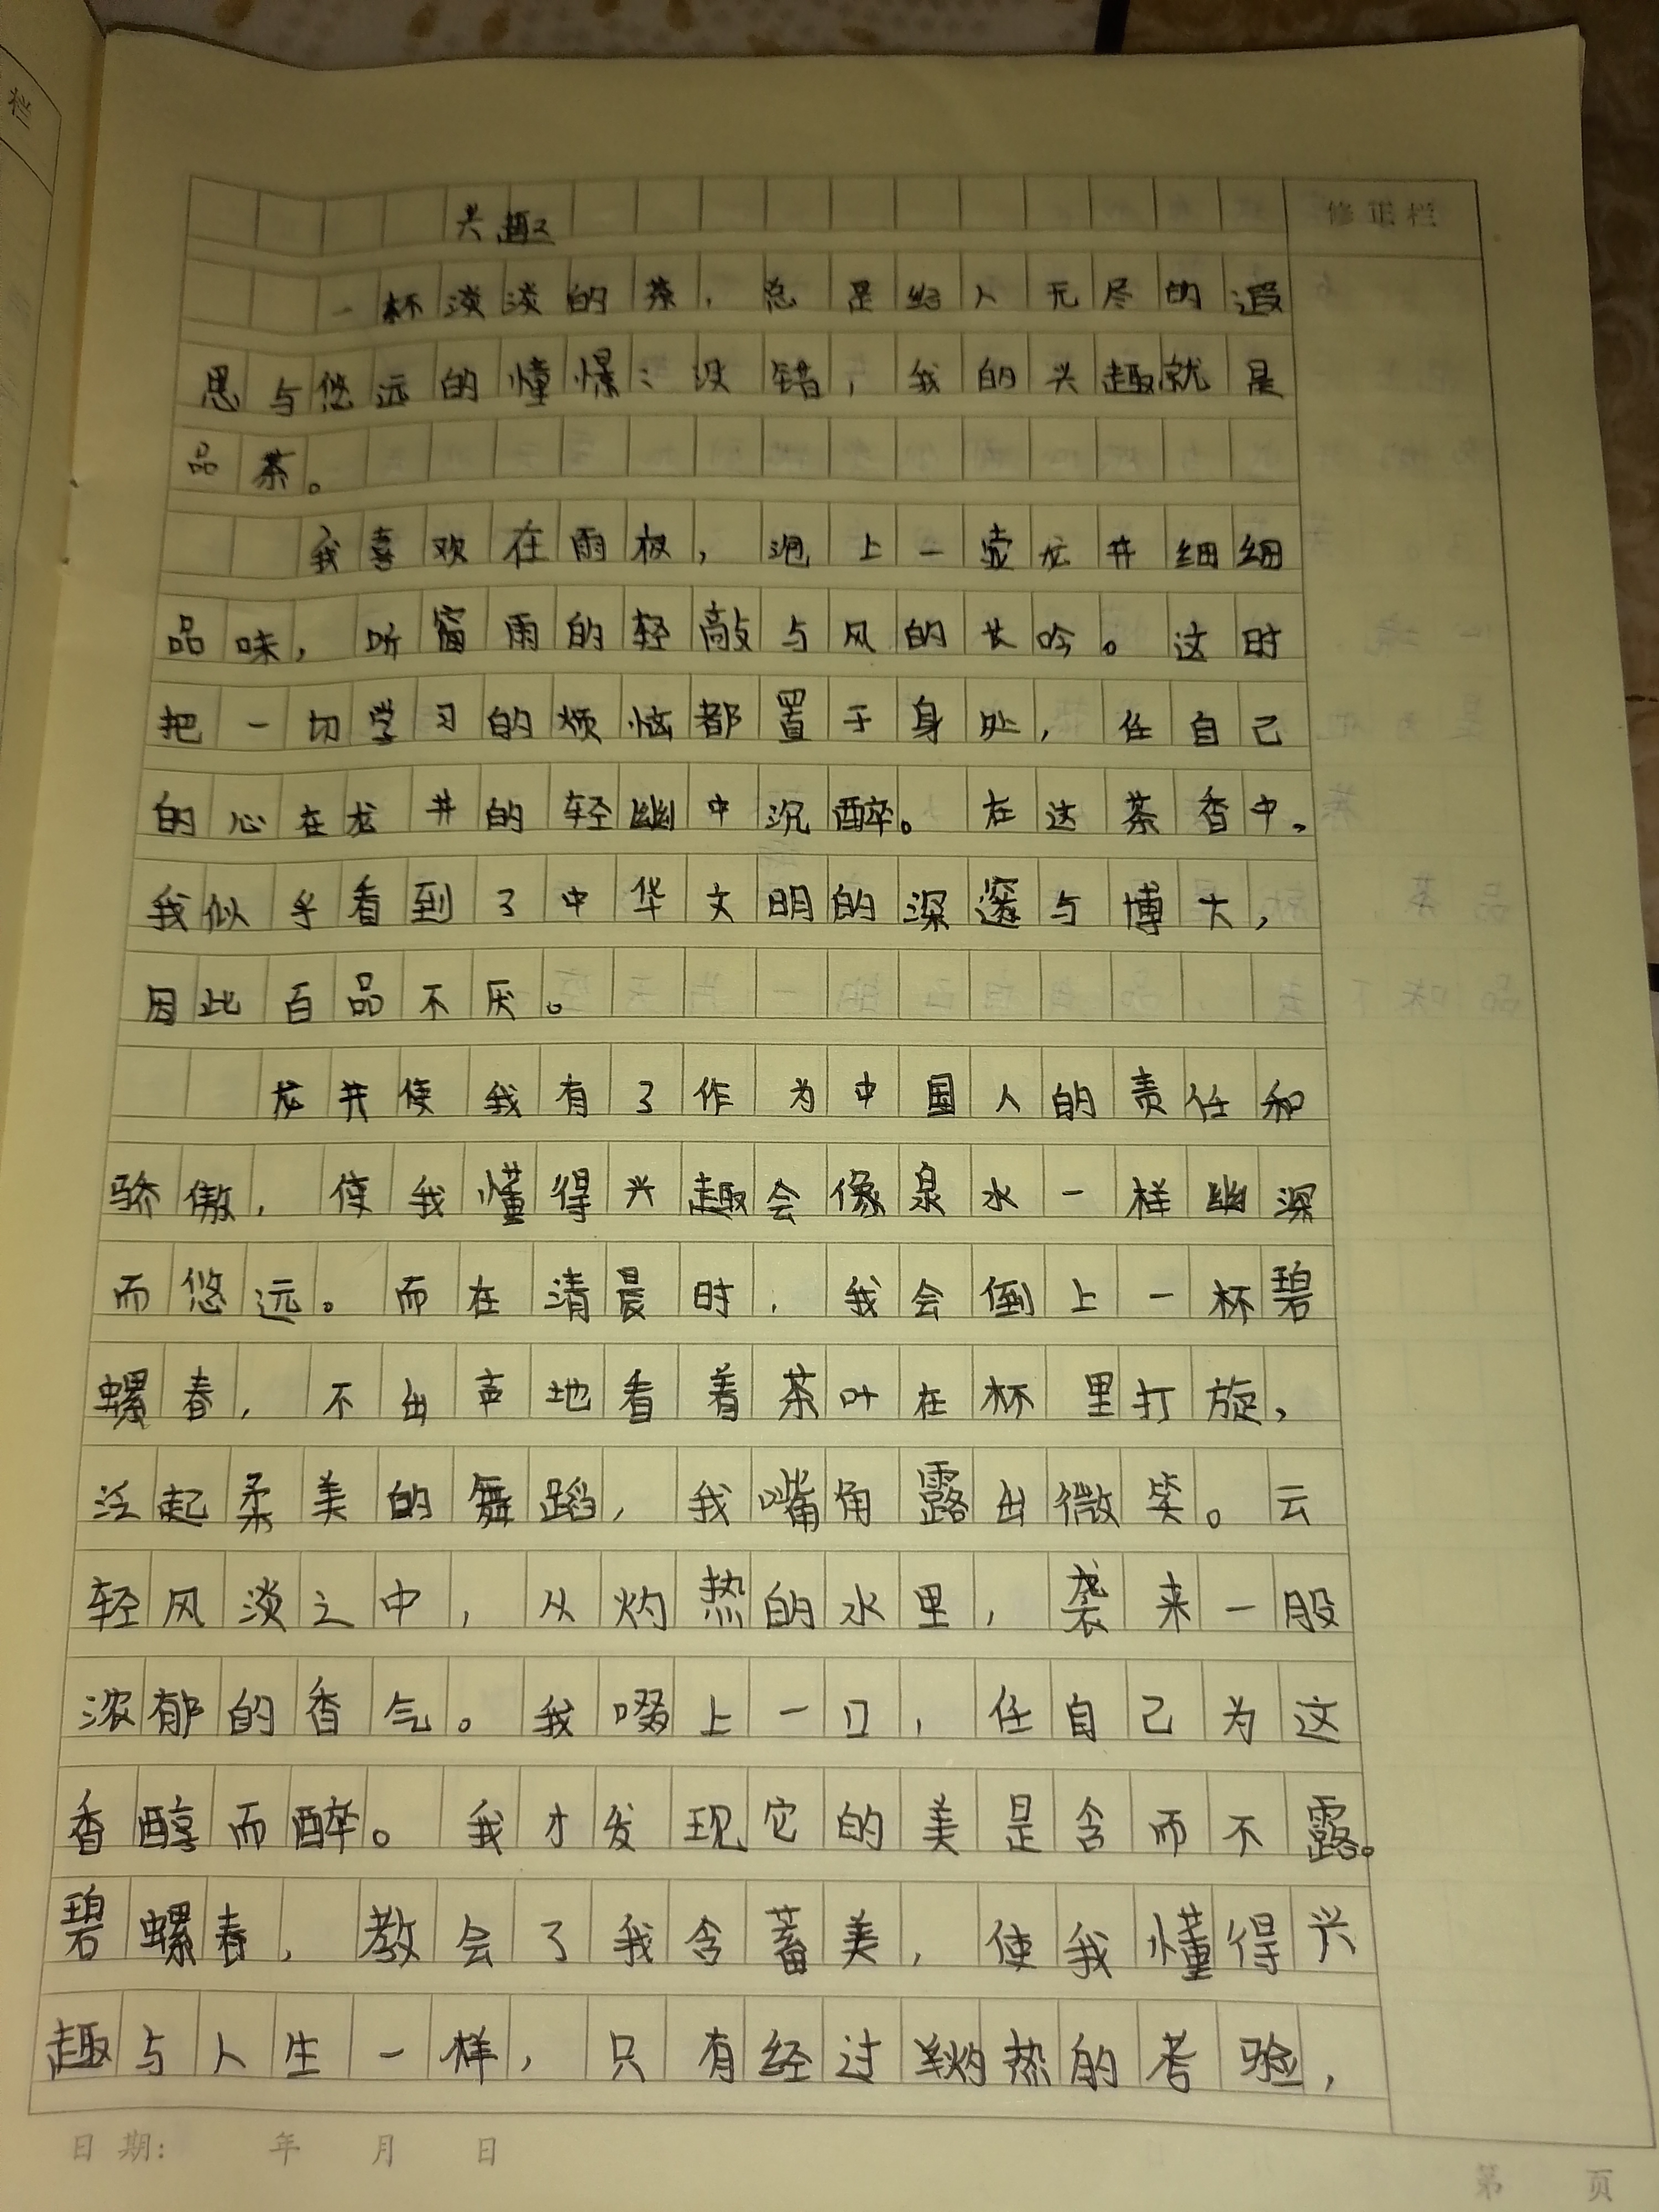 兴趣
修正栏
一杯淡淡的茶，总是给人无尽的遐
思与悠远的憧憬：没错，我的兴趣就是
品茶。
我喜欢在雨夜，泡上一壶龙井细细
品味，听窗雨的轻敲与风的长吟。这时
把一切学习的烦恼都置于身处，任自己
的心在龙井的轻幽中沉醉。在这茶香中，
我似乎看到了中华文明的深邃与博大，
因此百品不厌。
龙井使我有了作为中国人的责任和
骄傲，使我懂得兴趣会像泉水一样幽深
而悠远。而在清晨时，我会倒上一杯碧
螺春，不出声地看着茶叶在杯里打旋，
泛起柔美的舞蹈，我嘴角露出微笑。云
轻风淡之中，从灼热的水里，袭来一股
浓郁的香气。我啜上一口，任自己为这
香醇而醉。我才发现它的美是含而不露。
碧螺春，教会了我含蓄美，使我懂得兴
趣与人生一样，只有经过热的考验，
日期： 年 月 日
第 页
栏